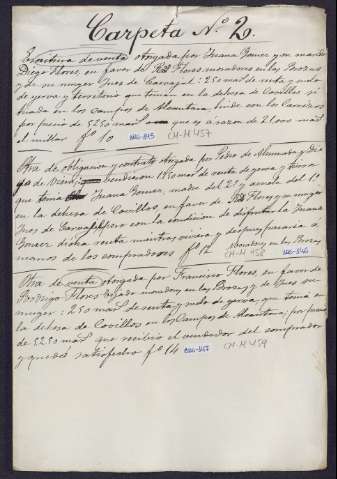 Carpeta Nº 2.
Escritura de venta otorgada por Juana Gomez y su marido
Diego Flores, en favor de Rº Flores moradores en las Brozas
y de su muger Ines de Carvajal: 250 mrs de renta y vedo
de yerva y heredamio que tenian en la dehesa de Corillos si
tuada en los campos de Alcantara, linde con las Carreras
por precio de 5250 mrs que es a razon de 21000 mrs
el millar fº 10 CM-M 457
Otra de obligacion y contrato otorgada por Pedro de Almarada y Die
go de vendieron 1850 mrs de renta de yerva y tierra
que tenia Juana Gomez, madre del 2º y amola del 1º
en la dehesa de Corillos, en favor de Rº Flores y su muger
Ines de Carvajal pero con la condicion de disfrutar la Juana
Gomez dicha renta mientras viviera y despues pasaria a
manos de los compradores fº 12 moradores en las Brozas
CM-M 458
Otra de venta otorgada por Francisco Flores, en favor de
Rodrigo Flores moradores en las Brozas y de Ines su
muger: 250 mrs de renta y vedo de yerva, que tenia en
la dehesa de Corillos en los Campos de Alcantara, por precio
de 5250 mrs que recibio el vendedor del comprador
y quedó satisfecho fº 14 CM-M 459